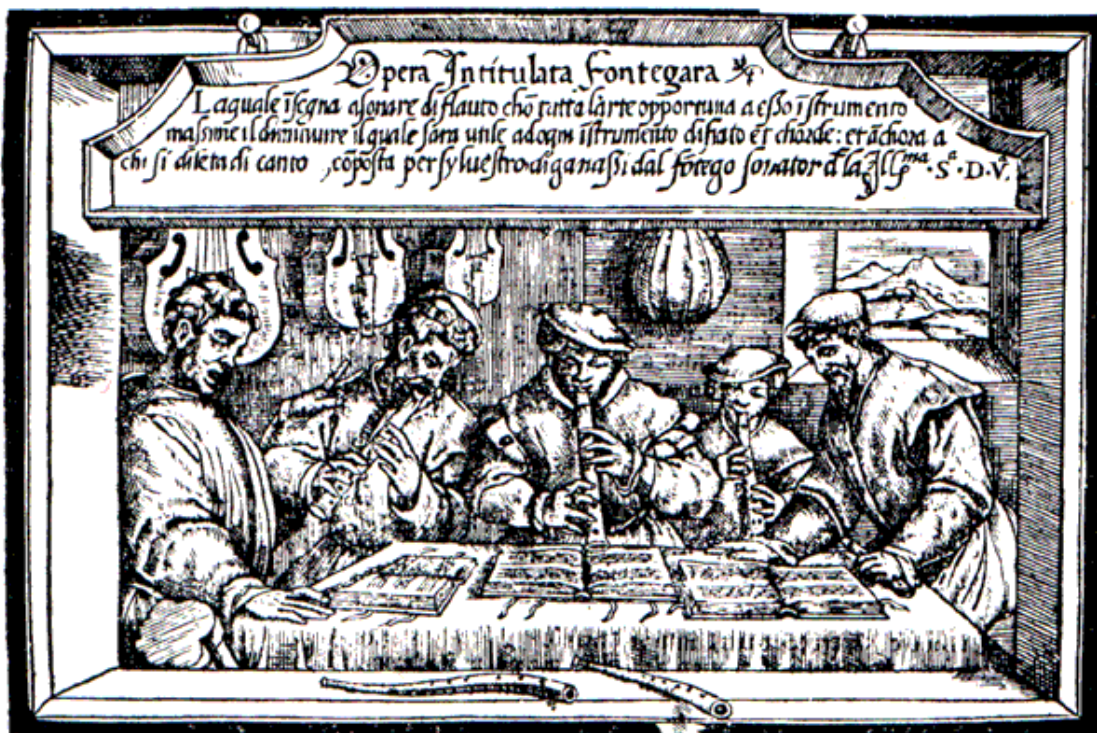 Opera Intitulata Fontegara
Laquale ĩsegna a sonare di flauto chõ tutta l'arte opportuna a esso ĩstrumento
massime il diminuire il quale sara utile ad ogni ĩstrumento di fiato et chorde: et ãchora a
chi si dileta di canto, cõposta per sylvestro di ganassi dal fõtego sonator d la S.D.V.